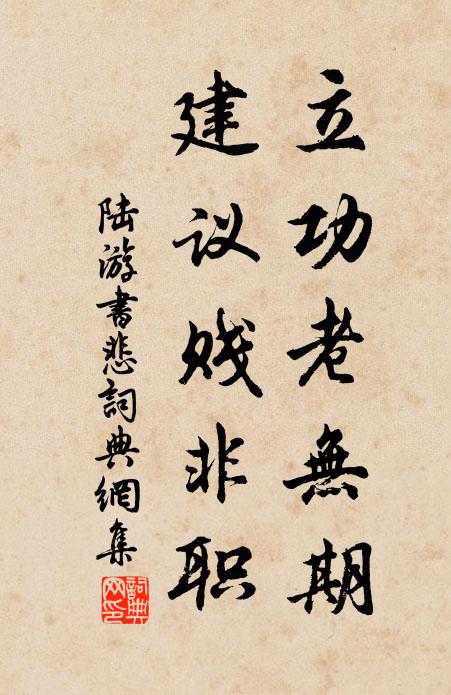 立功老無期
建议贱非职
陆游書悲詞典網集
詞典网印